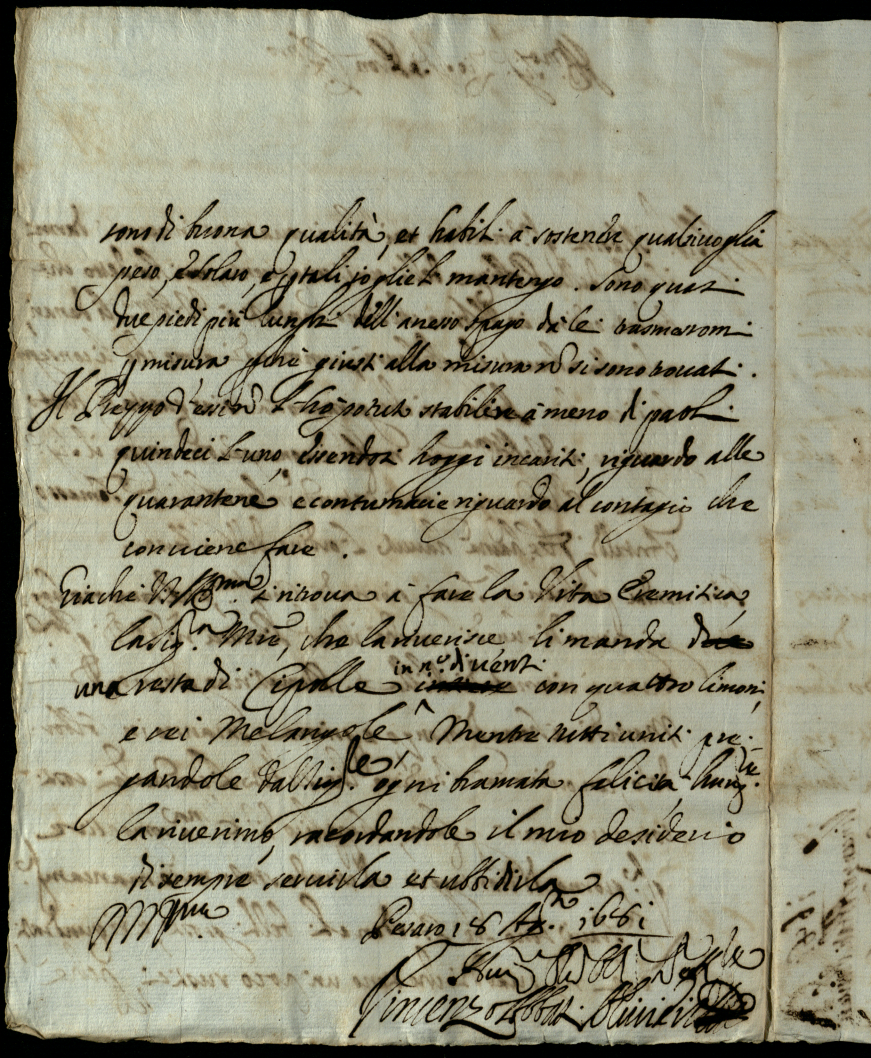 sono di buona qualità, et habili a sostener qualsivoglia
peso, e solaro, e p tali io glie li mantengo. Sono quasi
due piedi più lunghi dell'anesso spago da lei trasmessomi
p misura perche giusti alla misura nõ si sono trovati.
Il Prezzo d'essi nõ l'ho potuto stabilire a meno di paoli
quindeci l'uno, essendosi hoggi incariti, riguardo alle
quarantene e contumacie riguardo al contagio che
conviene fare.
Giache V.S. Ill.ma si ritrova à fare la Vita Eremitica
la Sig.ra Mia, che la riverisce li manda due
una resta di Cipolle in n.o di venti con quattro limoni,
e sei Melangole, Mentre tutti uniti pre-
gandole dal Sig.re ogni bramata felicità hum.te
la riverimo, racordandole il mio desiderio
di sempre servirla et ubbidirla
Pesaro 18 Ag.to 1681
Vincenzo Abbati Olivieri